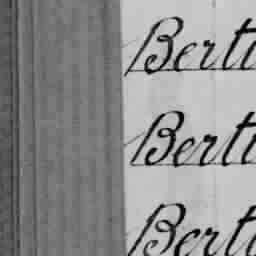 Berti
Berti
Berti